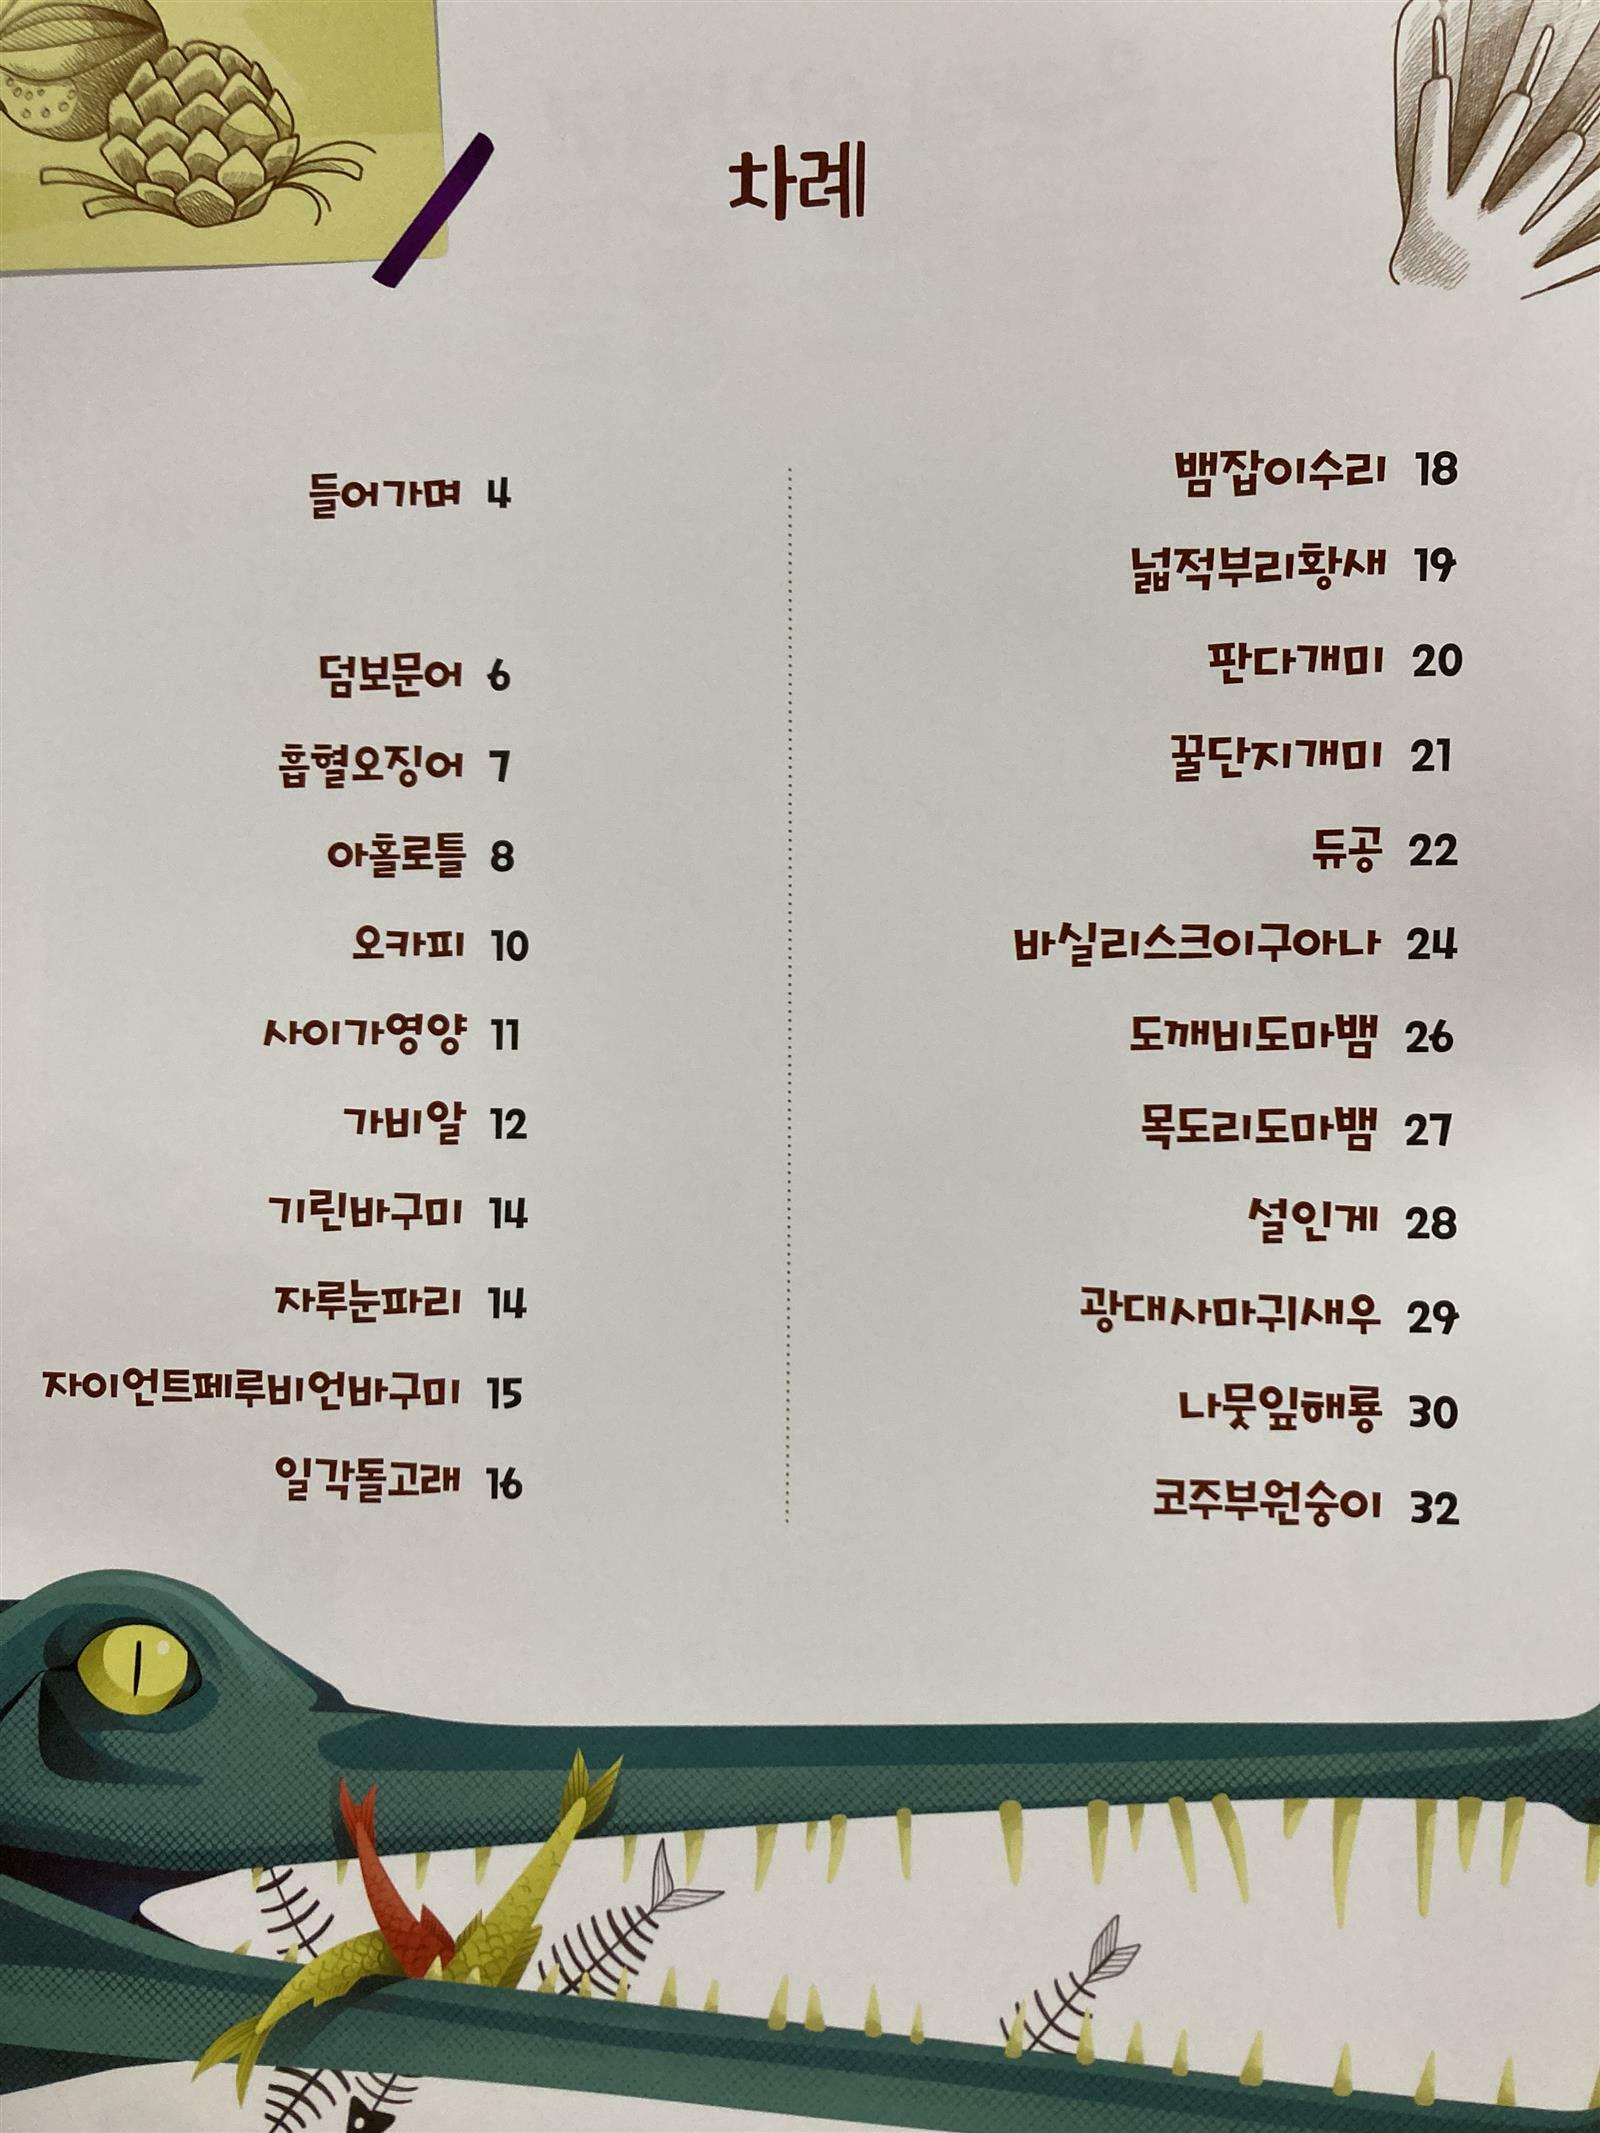 차례
들어가며 4
덤보문어 6
흡혈오징어 7
아홀로틀 8
오카피 10
사이가영양 11
가비알 12
기린바구미 14
자루눈파리 14
자이언트페루비언바구미 15
일각돌고래 16
뱀잡이수리 18
넓적부리황새 19
판다개미 20
꿀단지개미 21
듀공 22
바실리스크이구아나 24
도깨비도마뱀 26
목도리도마뱀 27
설인게 28
광대사마귀새우 29
나뭇잎해룡 30
코주부원숭이 32